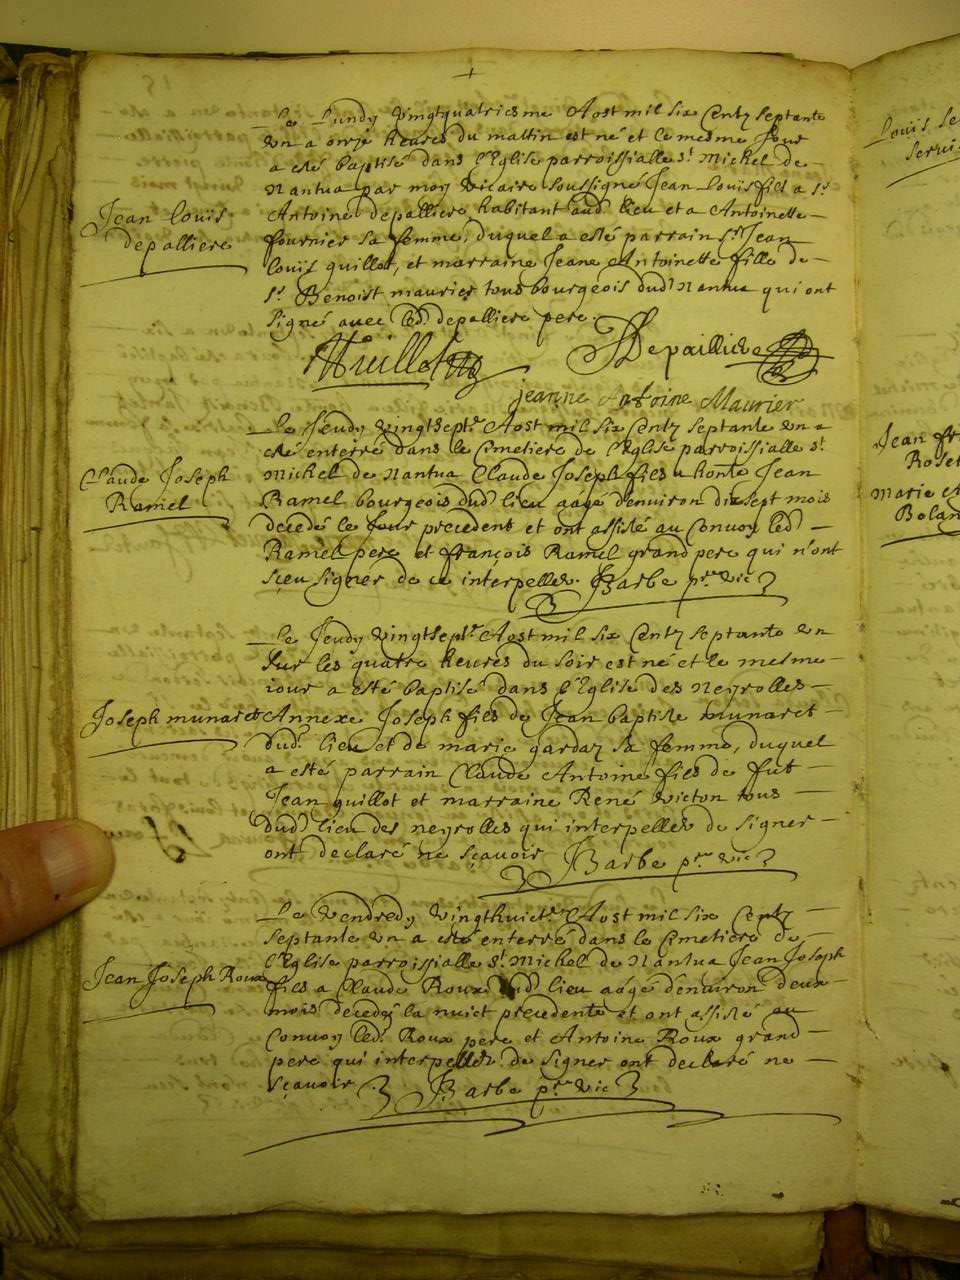 Le Lundy vingtquatriesme Aost mil six Centz septante
vn a onze heures du mattin est né et le mesme Jour
a esté baptisé dans l'Eglise parroissialle st Michel de
Nantua par moy vicaire soussigné Jean Louis fils a sr
Antoine depalliere habitant aud lieu et a Antoinette
fournier sa femme, duquel a esté parrain sr Jean
Louis guillot, et marraine Jeane Antoinette fille de
sr Benoist maurier tous bourgeois dud Nantua qui ont
signé auec led depalliere pere.
Jean Louis
depalliere
Guillot Depailliere
jeanne Antoine Maurier
Le Jeudy vingtsept Aost mil six Centz septante vn a
esté enterré dans le Cimetiere de l'Eglise parroissialle st
Michel de Nantua Claude Joseph fils a honte Jean
Ramel bourgeois dud lieu aagé d'enuiron dixsept mois
decedé le Jour precedent et ont assisté au Conuoy led
Ramel pere et françois Ramel grand pere qui n'ont
sçeu signer de ce interpellez. Barbe pre vic
Claude Joseph
Ramel
Le Jeudy vingtsept Aost mil six Centz septante vn
sur les quatre heures du soir est né et le mesme
iour a esté baptisé dans l'Eglise des Neyrolles
Annexe Joseph fils de Jean baptiste munaret
dud lieu et de marie gardaz sa femme, duquel
a esté parrain Claude Antoine fils de fut
Jean guillot et marraine René victon tous
dud lieu des neyrolles qui interpellez de signer
ont declaré ne sçauoir Barbe pre vic
Joseph munaret
Le Vendredy vingthuict Aost mil six Centz
septante vn a esté enterré dans le Cimetiere de
l'Eglise parroissialle st Michel de Nantua Jean Joseph
fils a Claude Roux dud lieu aagé d'enuiron deux
mois decedé la nuict precedente et ont assisté au
Conuoy led Roux pere et Antoine Roux grand
pere qui interpellez de signer ont declaré ne
sçauoir Barbe pre vic
Jean Joseph Roux
Louis
Jean fr
Roset
Marie
Bolan